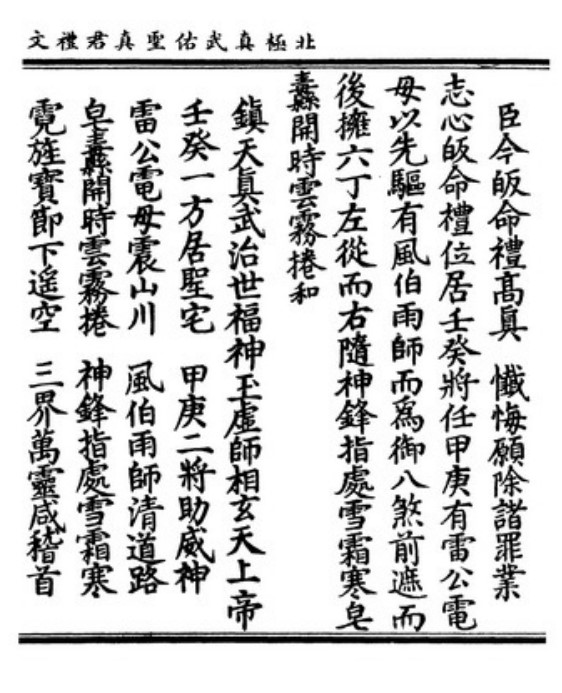 北極真武佑聖真君禮文
臣今皈命禮高眞 懺悔願除諸罪業
志心皈命禮位居壬癸將任甲庚有雷公電
母以先驅有風伯雨師而爲御八煞前遮而
後擁六丁左從而右隨神鋒指處雪霜寒皂
纛開時雲霧捲和
鎮天眞武治世福神玉虛師相玄天上帝
壬癸一方居聖宅 甲庚二將助威神
雷公電母震山川 風伯雨師清道路
皂纛開時雲霧捲 神鋒指處雪霜寒
霓旌寶節下遥空 三界萬靈咸稽首